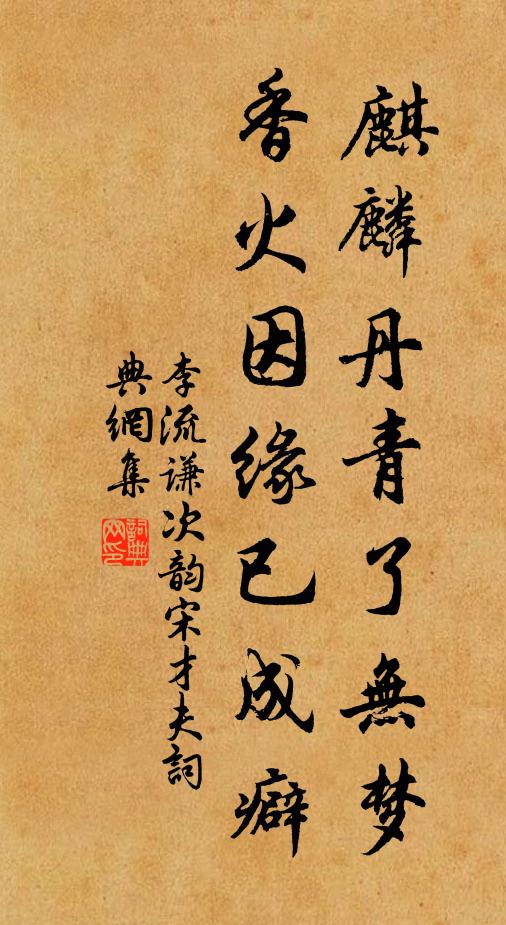 麒麟丹青了無梦
香火因缘已成癖
李流谦次韵宋才夫詞
典網集
詞典网印